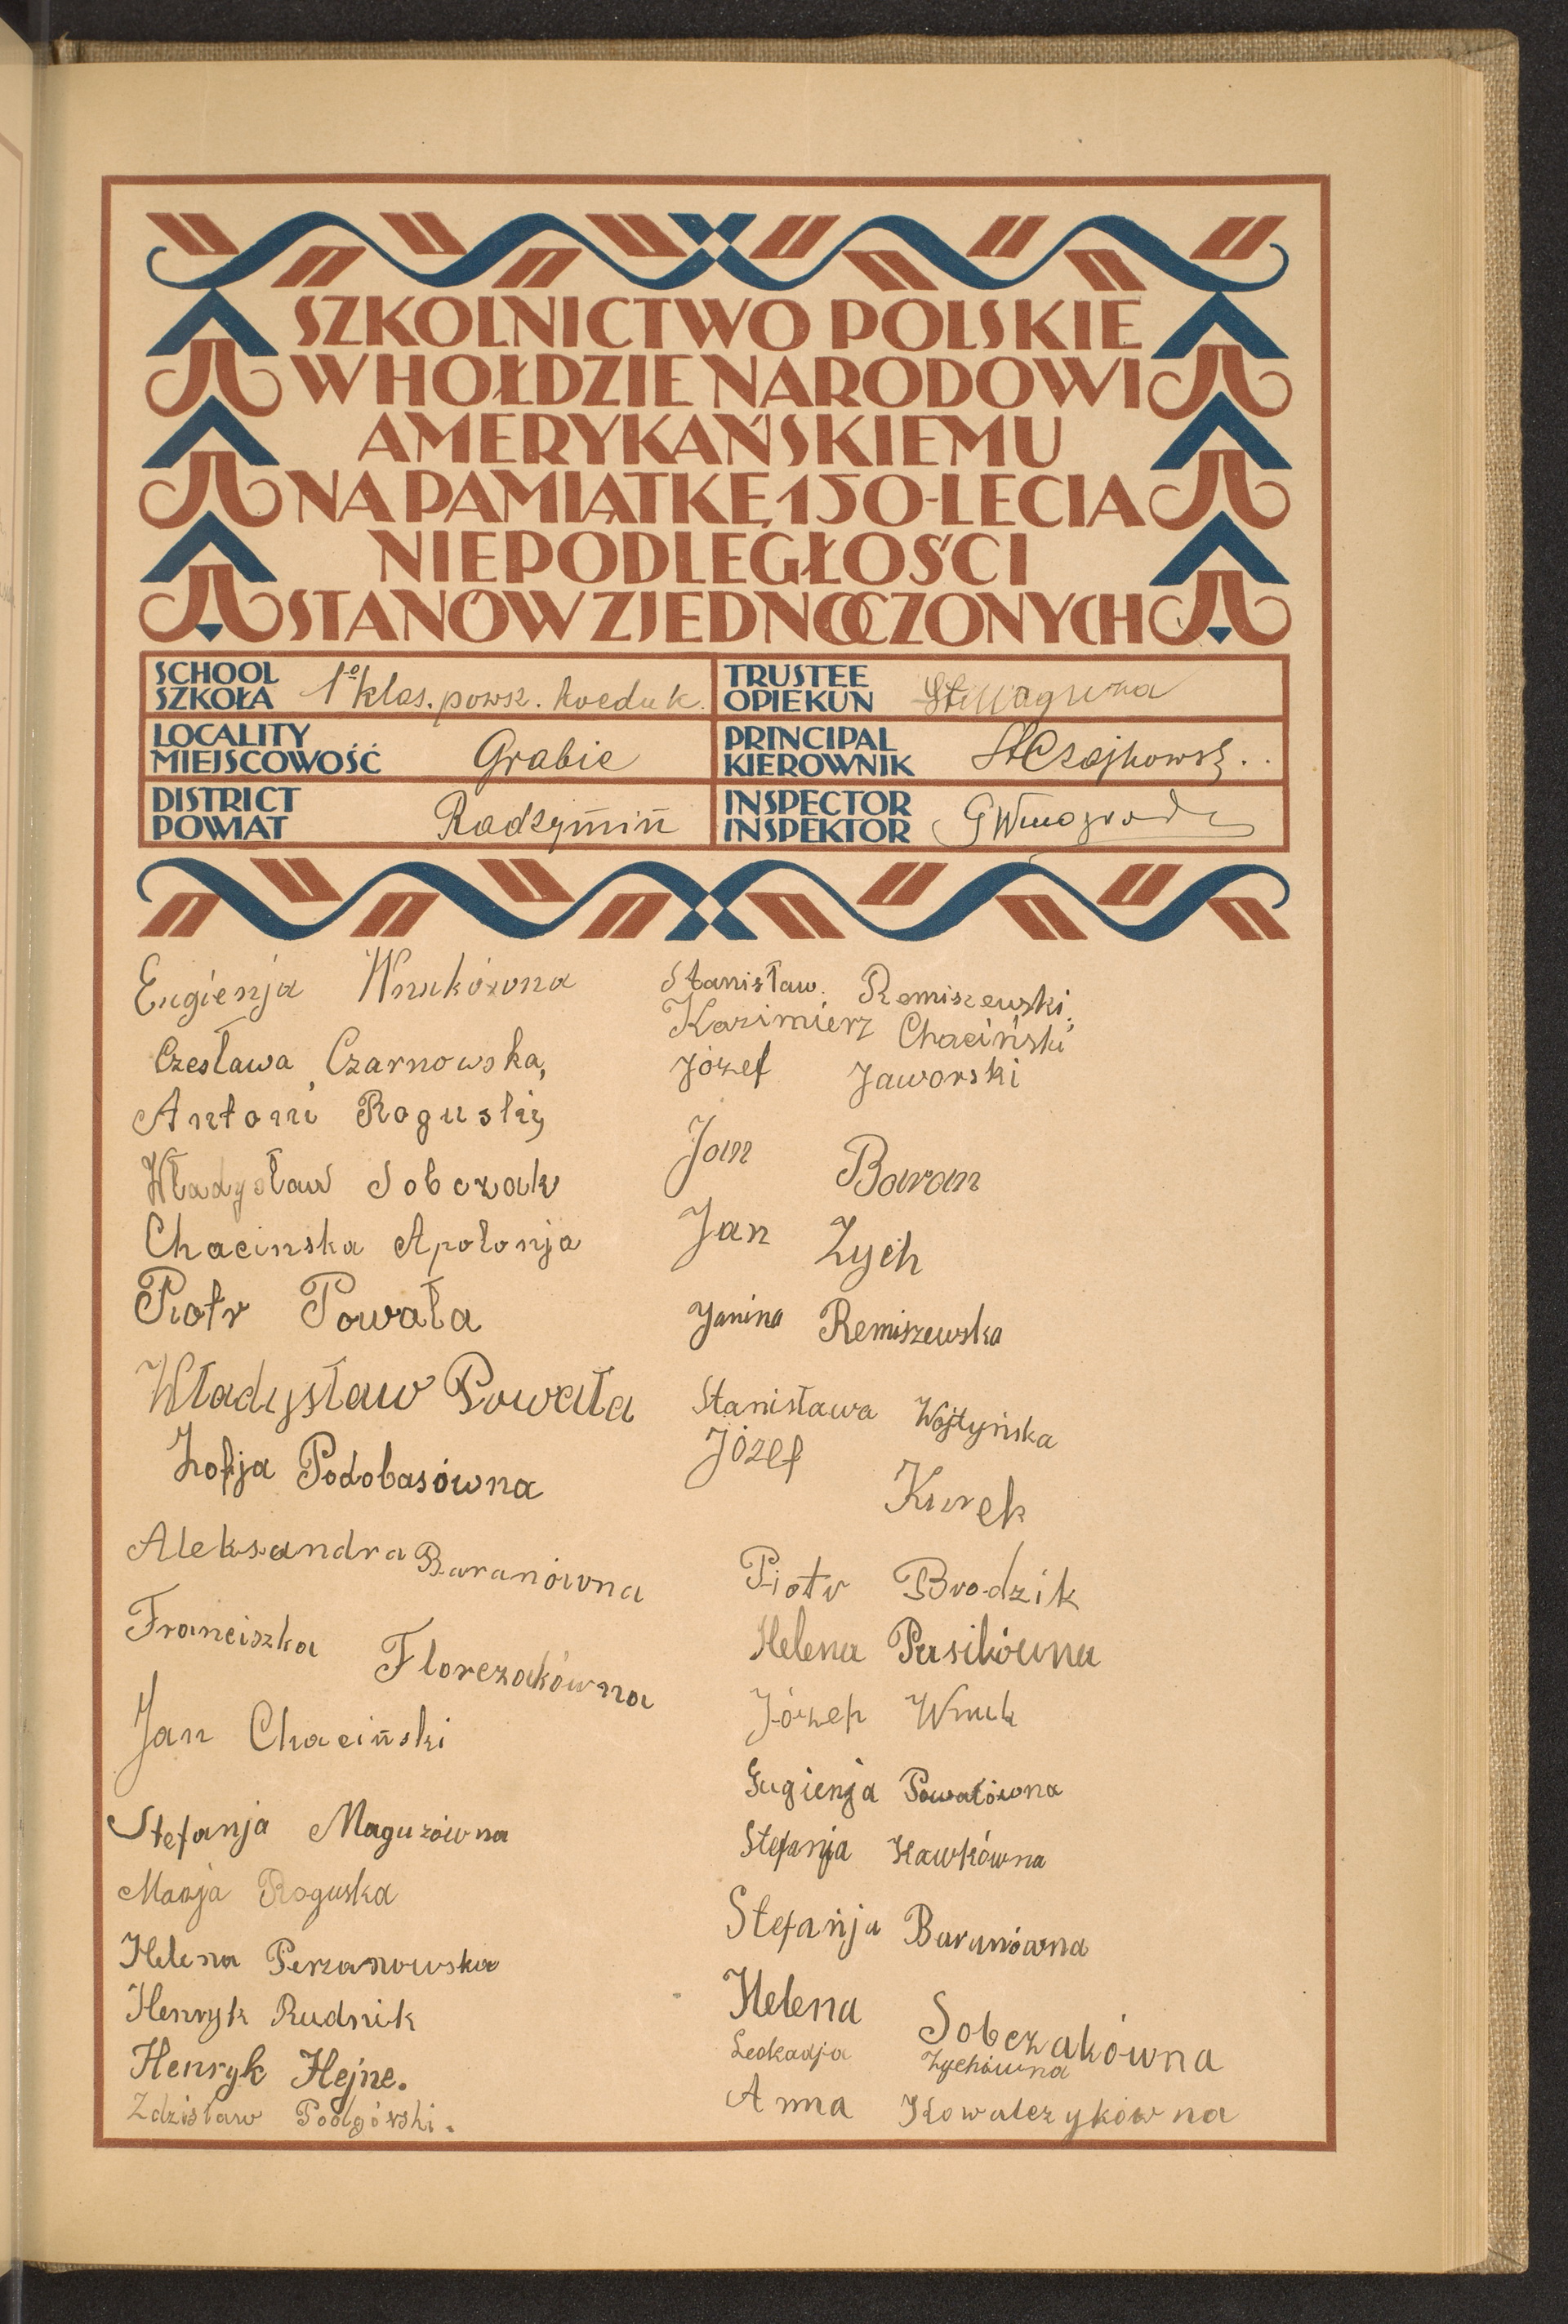 SZKOLNICTWO POLSKIE
W HOŁDZIE NARODOWI
AMERYKAŃSKIEMU
NA PAMIĄTKĘ 150-LECIA
NIEPODLEGŁOŚCI
STANÓW ZJEDNOCZONYCH
SCHOOL
SZKOŁA
1o klas. powsz. koeduk.
TRUSTEE
OPIEKUN
LOCALITY
MIEJSCOWOŚĆ
Grabie
PRINCIPAL
KIEROWNIK
DISTRICT
POWIAT
Radzymin
INSPECTOR
INSPEKTOR
Eugienja Wnukówna
Czesława Czarnowska,
Antoni Roguski,
Władysław Sobczak
Chacinska Apołonja
Piotr Powała
Władysław Powała
Zofja Podobasówna
Aleksandra Baranówna
Franciszka Florczakówna
Jan Chaciński
Stefanja Maguzówna
Marja Roguska
Helena Perzanowska
Henryk Rudnik
Henryk Hejne.
Zdzisław Podgórski.
Stanisław. Remiszewski.
Kazimierz Chaciński
Józef Jaworski
Jan Baran
Jan Zych
Janina Remiszewska
Stanisława Wojtyńska
Józef Kurek
Piotr Brodzik
Helena Pasikówna
Józef Wnuk
Eugienja Powałówna
Stefanja Kawkówna
Stefanja Baranówna
Helena Sobczakówna
Leokadja Zychówna
Anna Kowalczykówna